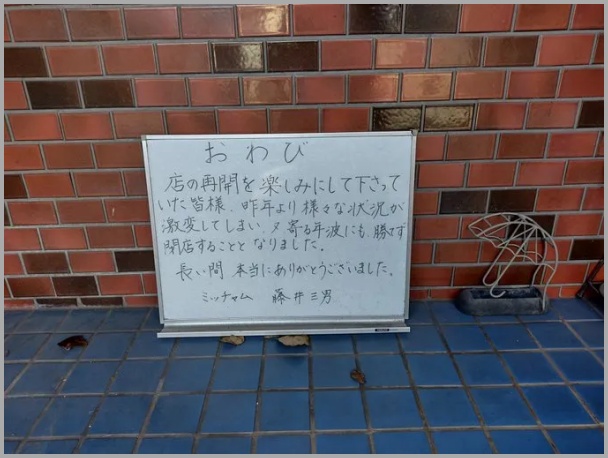 おわび
店の再開を楽しみにして下さって
いた皆様、昨年より様々な状況が
激変してしまい、又寄る年波にも勝てず
閉店することと なりました。
長い間 本当にありがとうございました。
ミッチャム 藤井三男